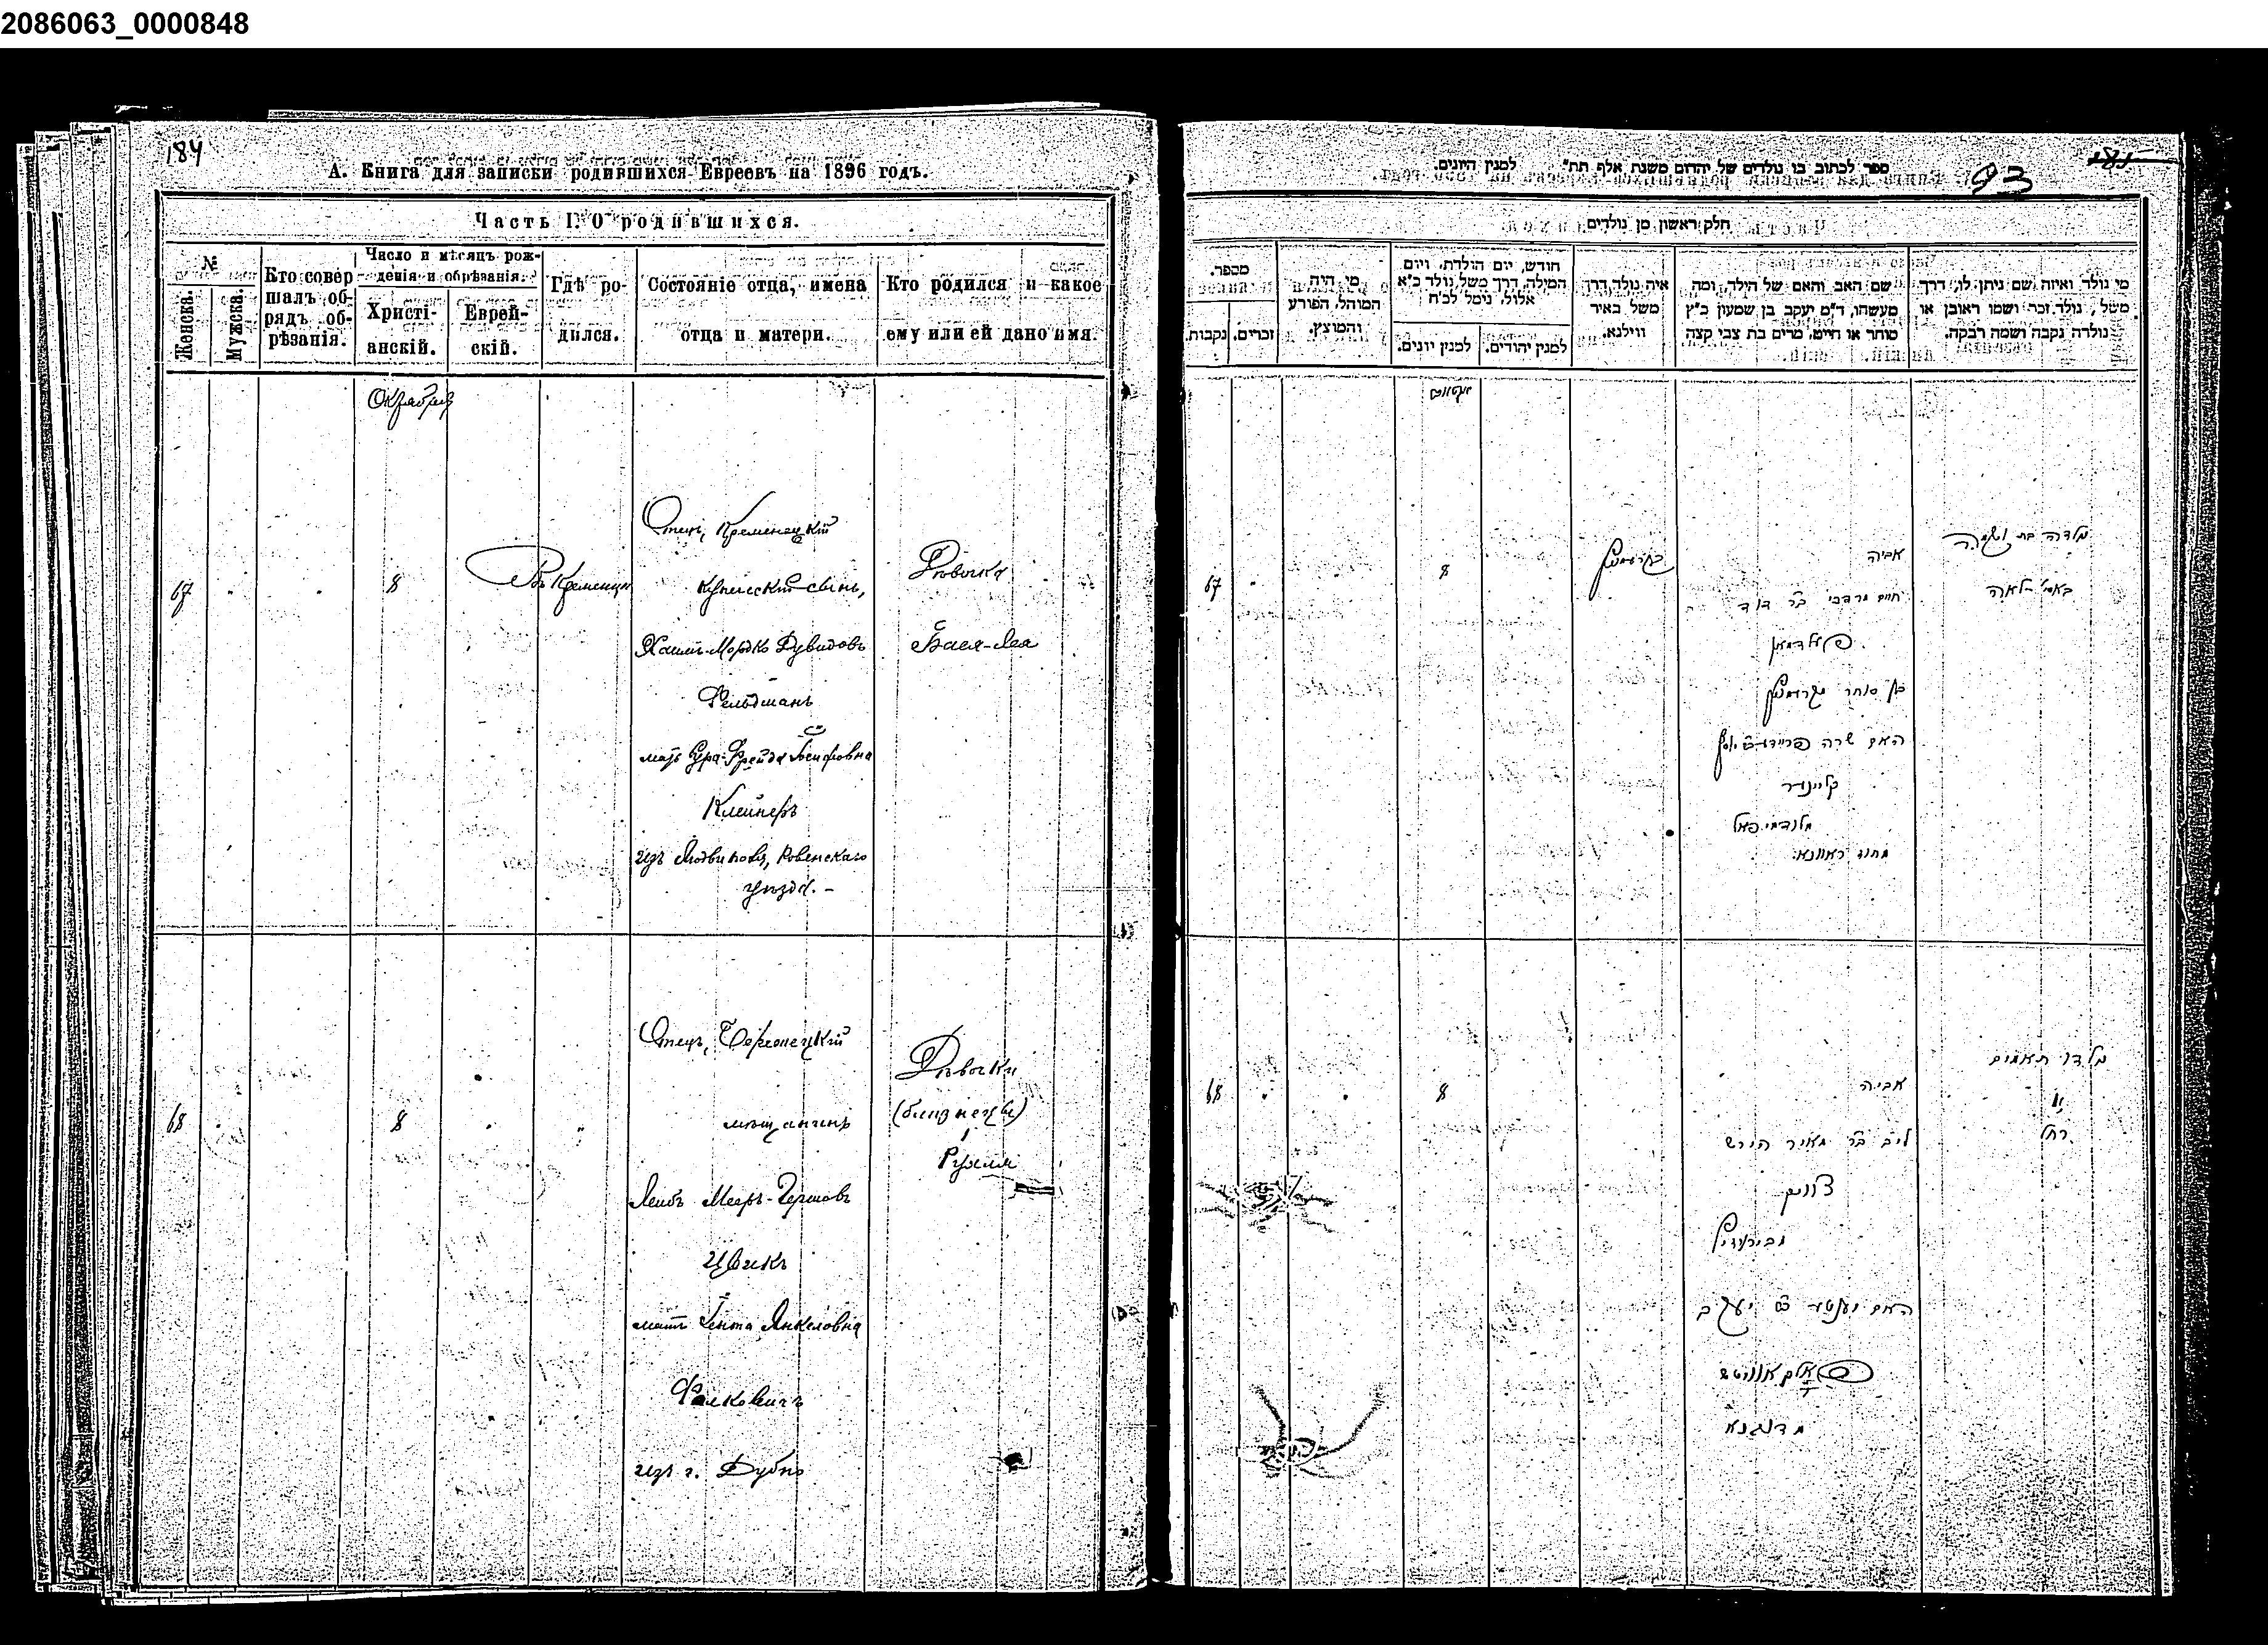 2086063_0000848
184
А. Книга для записки родившихся Евреевъ на 1896 годъ.
Часть I. О родившихся.
№
Женска.
Мужска.
Кто совершалъ об-
рядъ об-
рѣзанія.
Число и мѣсяцъ рож-
денія и обрѣзанія.
Христі-
анскій.
Еврей-
скій.
Гдѣ ро-
дился.
Состояніе отца, имена
отца и матери.
Кто родился и какое
ему или ей дано имя.
Октября
67
8
Въ Кременцѣ
Отецъ, Кременецкій
купеческій сынъ,
Хаимъ-Мордко Дувидовъ
Фельдманъ
мать Сура-Фрейда Іосифовна
Клейнеръ
изъ Людвиполя, Ровенскаго
уѣзда.-
Дѣвочка
Бася-Лея
68
8
Отецъ,
мѣщанинъ
Лейбъ Мееръ-Гершовъ
Цвикъ
мать Ента Янкеловна
Фалковичъ
изъ г. Дубно
Дѣвочки
(близнецы)
1
Рухля
ספר לכתוב בו נולדים של יהדום משנת אלף תת" למנין היונים
93
185
חלק ראשון מן נולדים
מספר.
נקבות.
זכרים.
מי היה
המוהל, הפורע
והמוצץ.
חודש, יום הולדת, ויום
המילה, דרך משל נולד כ"א
אלול, נימל לכ"ח
למנין יונים.
למנין יהודים.
איה נולד, דרך
משל באיר
ווילנא.
שם האב והאם של הילד, ומה
מעשהו, ד"מ יעקב בן שמעון כ"ץ
סוחר או חייט, מרים בת צבי קצה
מי נולד ואיזה שם ניתן לו, דרך
משל, נולד זכר ושמו ראובן או
נולדה נקבה ושמה רבקה.
67
8
אביה
חיים מרדכי בר דוד
פעלדמאן
בן סוחר
האם שרה פריידא
קליינער
מחוז ראוונא
נולדה בת ושמה
באסי לאה
68
8
אביה
ליב בר מאיר הירש
צוויק
האם יענטא בת יעקב
פאלקאוויטש
מדובנא
נולדו תאומים
רחל